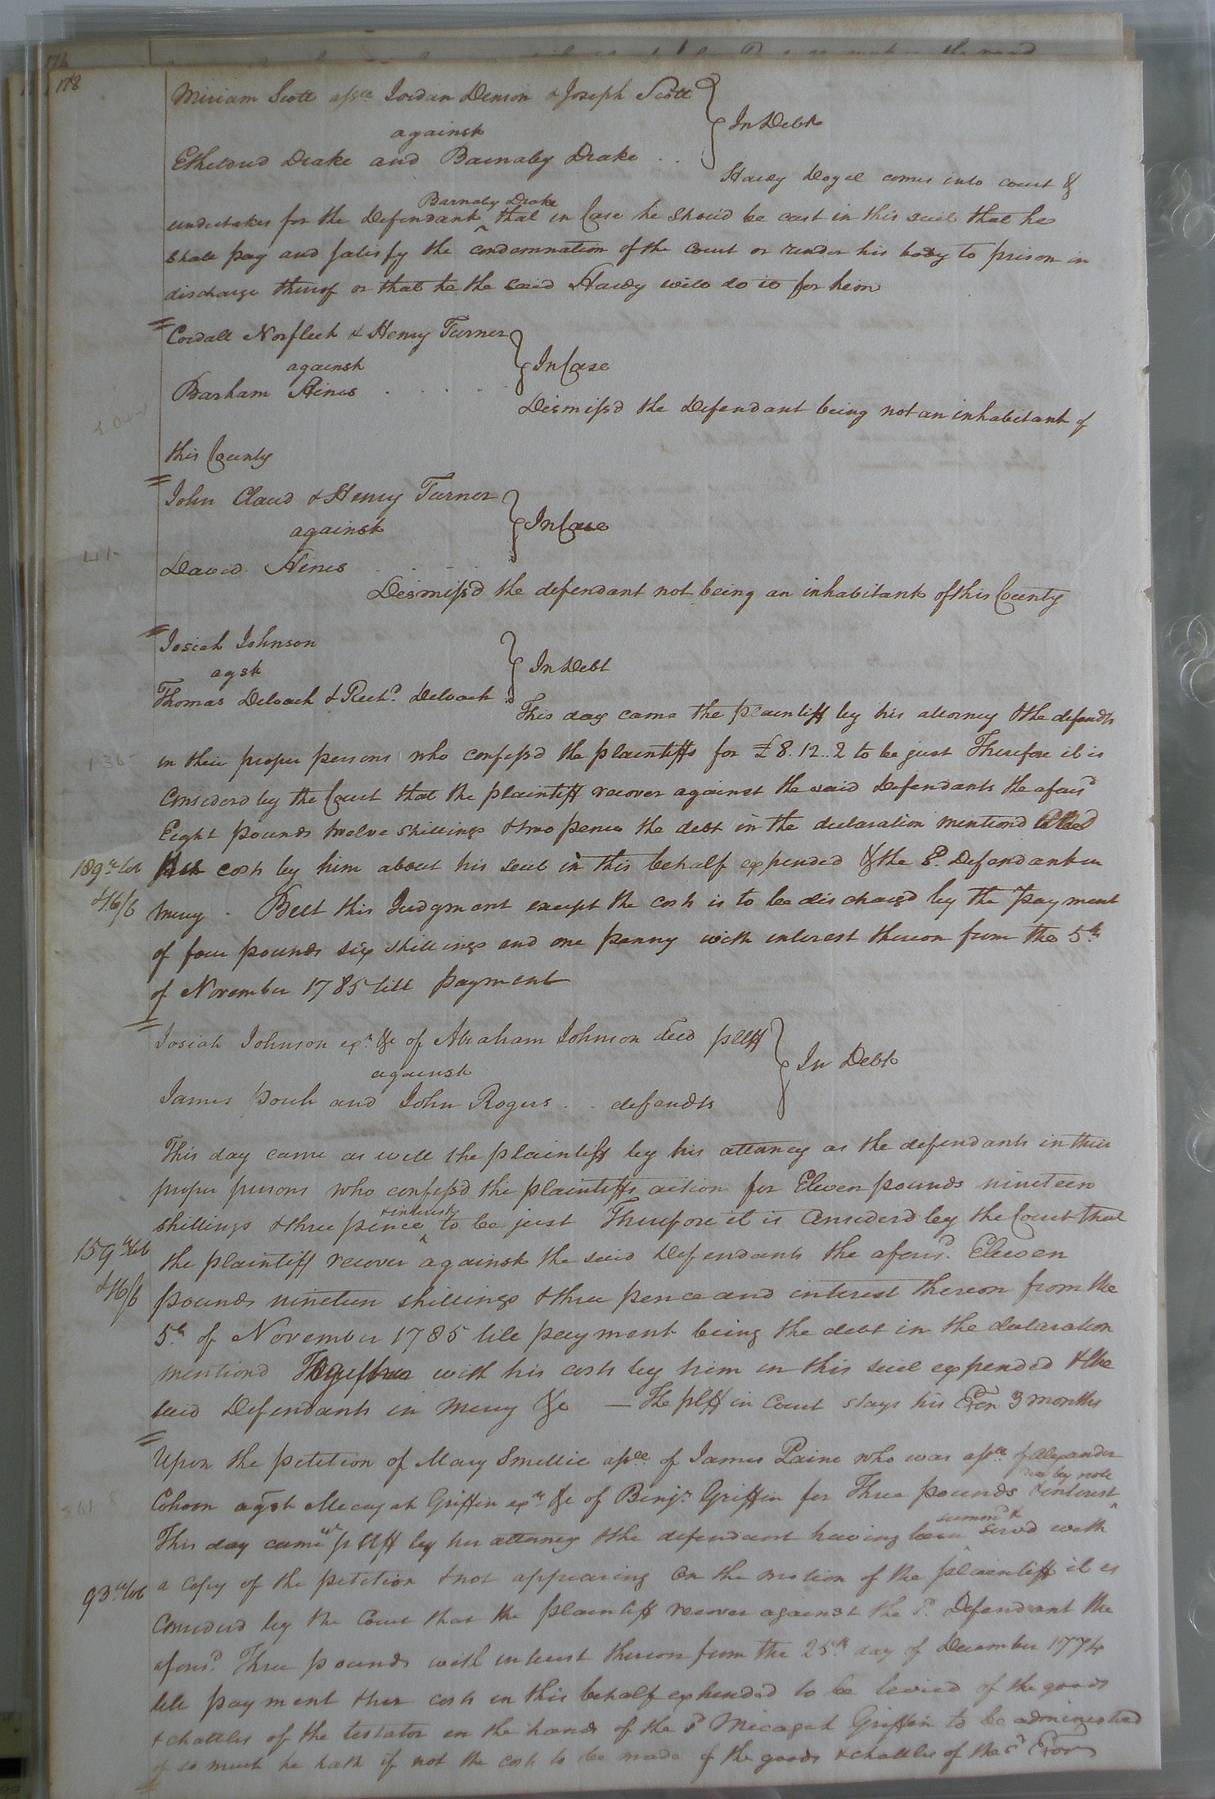 178
Miriam Scott assee Jordan Denson & Joseph Scott
against
In Debt
Etheldred Drake and Barnaby Drake . .
Hardy comes into court &
Barnaby Drake
undertakes for the Defendant ^ that in Case he should be cast in this suit that he
shall pay and satisfy the condemnation of the court or render his body to prison in
discharge thereof or that he the said Hardy will do it for him
Cordall Norfleet & Henry Turner
against
In Case
Barham Hines . . . . .
Dismiss'd the Defendant being not an inhabitant of
this County
John Claud & Henry Turner
against
In Case
David Hines . . . .
Dismiss'd the defendant not being an inhabitant of this County
Josiah Johnson
agst
In Debt
Thomas Deloach & Richd. Deloach
This day came the plaintiff by his attorney & the defendts
in their proper persons who confess'd the plaintiffs for £8.12..2 to be just Therefore it is
Considerd by the Court that the plaintiff recover against the said Defendants the aforsd
Eight pounds twelve shillings & two pence the debt in the declaration mentiond
189 lb tob
&16/6
his costs by him about his suit in this behalf expended & the sd. Defendants in
mercy . But this Judgment except the costs is to be discharged by the payment
of four pounds six shillings and one penny with interest thereon from the 5th
of November 1785 till payment
Josiah Johnson exr. &c of Abraham Johnson decd pltff
against
In Debt
James and John Rogers . . defendts
This day came as well the plaintiff by his attorney as the defendants in their
proper persons who confess'd the plaintiffs action for Eleven pounds nineteen
& interest
shillings & three pence ^ to be just Therefore it is Considerd by the Court that
159 lb tob
&16/6
the plaintiff recover against the said Defendants the aforsd. Eleven
pounds nineteen shillings & three pence and interest thereon from the
5th of November 1785 till payment being the debt in the declaration
mentiond Together with his costs by him in this suit expended & the
said Defendants in Mercy &c — The pltff in Court stays his Exon 3 months
Upon the petition of Mary Smellie assee of James Paine who was assee of Alexander
due by note
Cohoon agst Mecajah Griffin exr &c of Benjn Griffin for Three pounds & interest
summd &
This day came ye pltff by her attorney & the defendant having been ^ servd with
93 lb tob
a copy of the petition & not appearing On the motion of the plaintiff it is
Considerd by the Court that the plaintiff recover against the sd. Defendant the
aforsd. Three pounds with interest thereon from the 25th day of December 1774
till payment & her costs in this behalf expended to be levied of the goods
& chattles of the testator in the hands of the sd Micajah Griffin to be administred
if so much he hath if not the costs to be made of the goods & chattles of the sd Exor